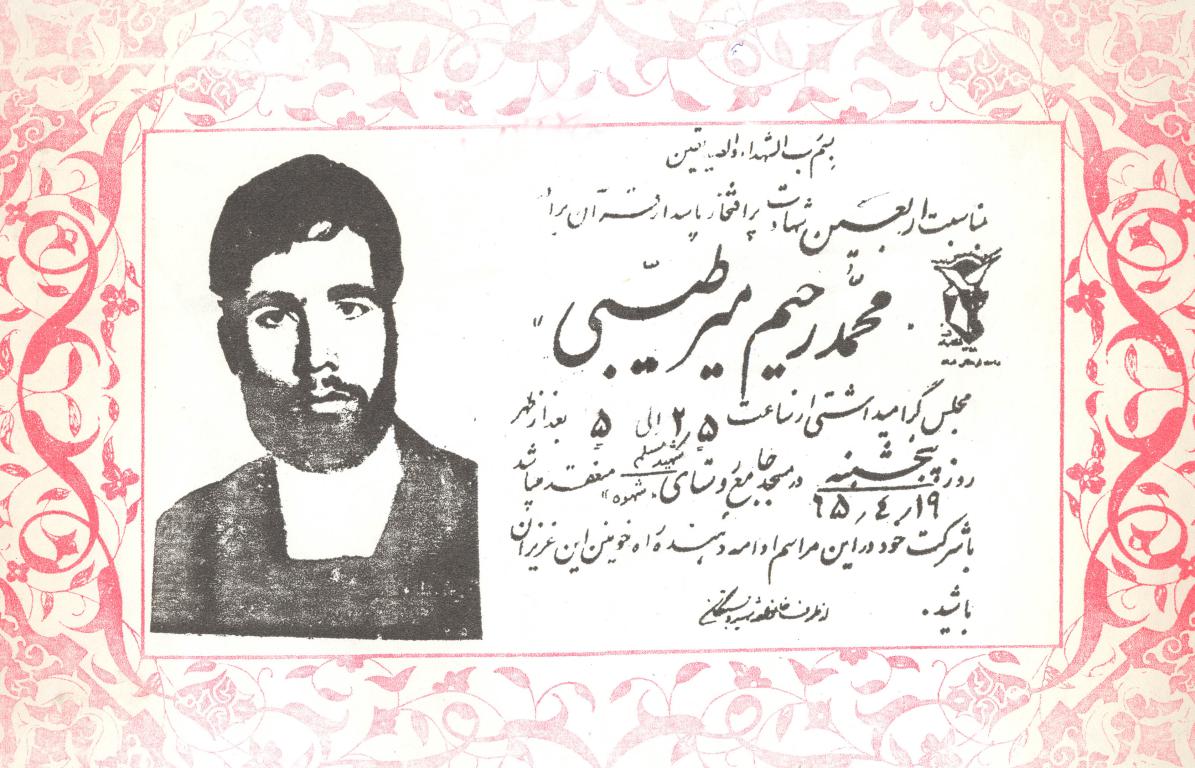 بسم رب الشهداء والصدیقین
بمناسبت اربعین شهادت پر افتخار پاسدار قرآن برادر
"محمّد رحیم میر طیّبی"
مجلس گرامیداشتی از ساعت ۲/۵ الی ۵ بعد از ظهر
روز پنجشنبه ۶۵٫۴٫۱۹ در مسجد جامع روستای شهید مسلم "شهوه" منعقد میباشد
با شرکت خود در این مراسم ادامه دهنده راه خونین این عزیزان
باشید.
از طرف خانواده شهید و بستگان